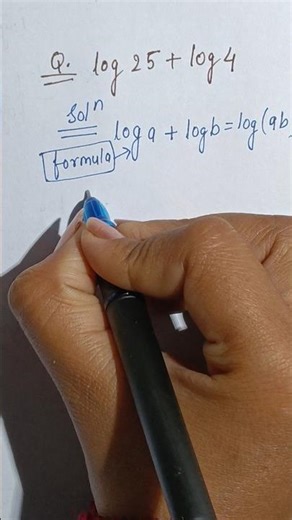 Q. log 25 + log 4
Solⁿ
log a + log b = log(ab
formula →